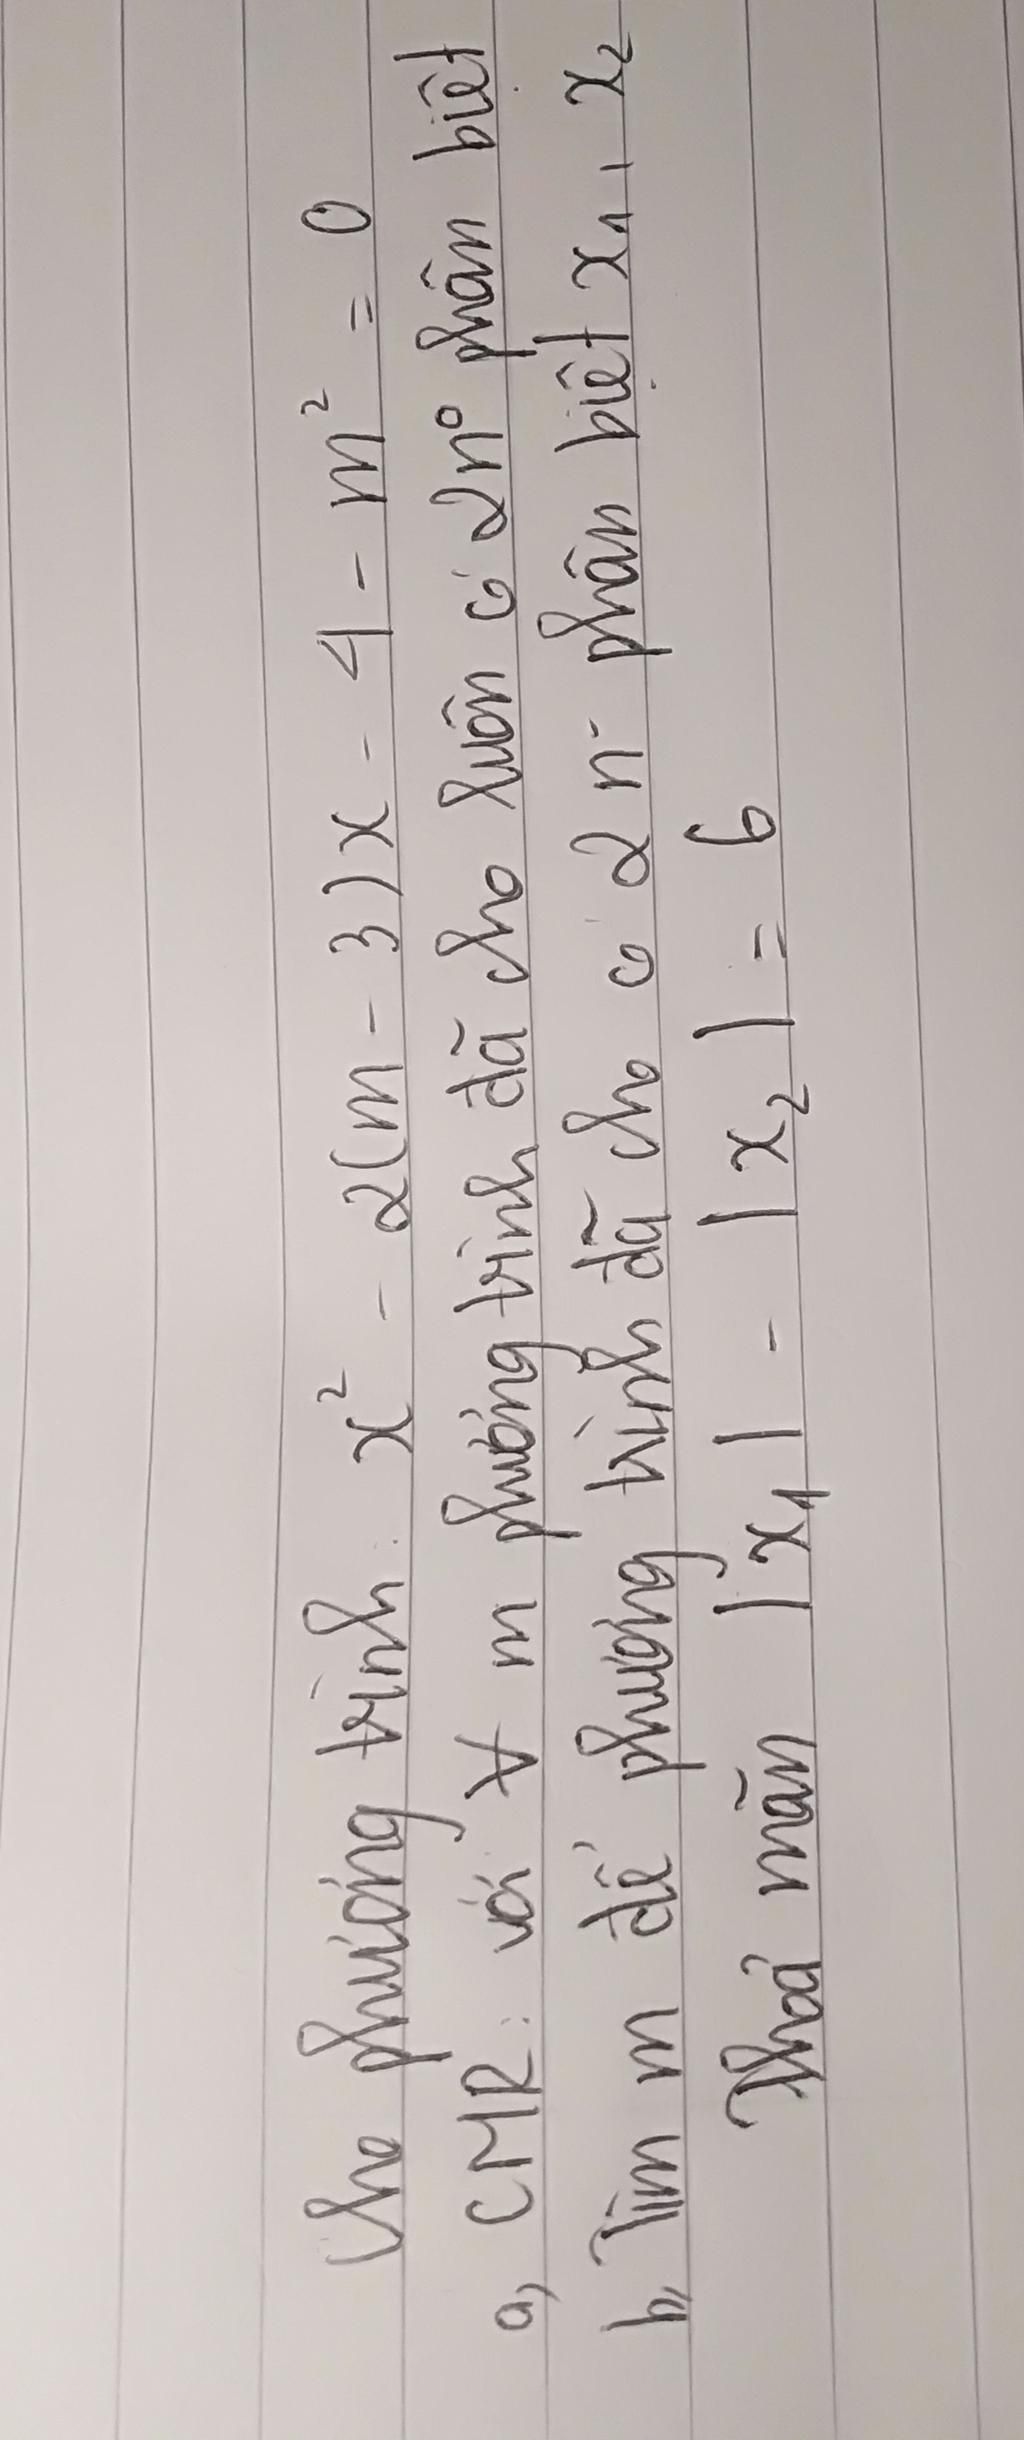 Cho phương trình: x² - 2(m - 3)x - 4 - m² = 0
a, CMR: với ∀ m phương trình đã cho luôn có 2 n⁰ phân biệt
b, Tìm m để phương trình đã cho có 2 n⁰ phân biệt x₁, x₂
Thoả mãn |x₁| - |x₂| = 6